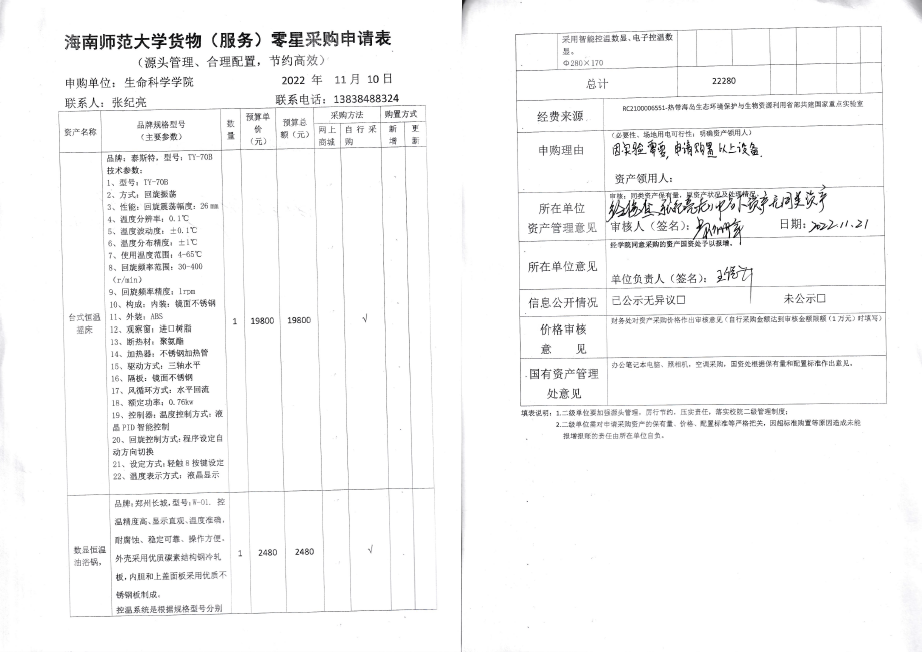 海南师范大学货物（服务）零星采购申请表
（源头管理、合理配置，节约高效）
申购单位：生命科学学院 2022 年 11 月 10 日
联系人：张纪亮 联系电话：13838488324
资产名称 品牌规格型号（主要参数） 数量 预算单价（元） 预算总额（元） 采购方法 购置方式
网上商城 自行采购 新增 更新
台式恒温摇床 1 19800 19800 √
品牌：泰斯特，型号：TY-70B
技术参数：
1、型号：TY-70B
2、方式：回旋振荡
3、性能：回旋震荡幅度：26mm
4、温度分辨率：0.1℃
5、温度波动度：±0.1℃
6、温度分布精度：±1℃
7、使用温度范围：4-65℃
8、回旋频率范围：30-400
（r/min）
9、回旋频率精度：1rpm
10、构成：内装：镜面不锈钢
11、外装：ABS
12、观察窗：进口树脂
13、断热材：聚氨酯
14、加热器：不锈钢加热管
15、驱动方式：三轴水平
16、隔板：镜面不锈钢
17、风循环方式：水平回流
18、额定功率：0.76kw
19、控制器：温度控制方式：液
晶PID智能控制
20、回旋控制方式：程序设定自
动方向切换
21、设定方式：轻触8按键设定
22、温度表示方式：液晶显示
数显恒温油浴锅， 1 2480 2480 √
品牌：郑州长城，型号：W-01. 控
温精度高、显示直观、温度准确、
耐腐蚀、稳定可靠、操作方便。
外壳采用优质碳素结构钢冷轧
板，内胆和上盖面板采用优质不
锈钢板制成。
控温系统是根据规格型号分别
采用智能控温数显、电子控温数
显。
Φ280×170
总计 22280
经费来源 RC2100006551-热带海岛生态环境保护与生物资源利用省部共建国家重点实验室
申购理由 （必要性、场地用电可行性；明确资产领用人）
因实验需要，申请购置以上设备．
资产领用人：
所在单位
资产管理意见
审核：同类资产保有量，原资产状况及处理情况。
审核人（签名）： 日期：2022.11.21
所在单位意见 经学院同意采购的资产国资处予以报增。
单位负责人（签名）：
信息公开情况 已公示无异议□ 未公示□
价格审核
意 见
财务处对资产采购价格作出审核意见（自行采购金额达到审核金额限额（1 万元）时填写）
国有资产管理
处意见
办公笔记本电脑、照相机，空调采购，国资处根据保有量和配置标准作出意见。
填表说明：1.二级单位要加强源头管理，厉行节约，压实责任，落实校院二级管理制度；
2.二级单位需对申请采购资产的保有量、价格、配置标准等严格把关，因超标准购置等原因造成未能
报增报账的责任由所在单位自负。